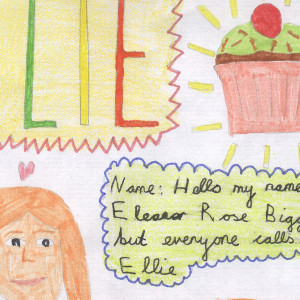 LLIE
Name: Hello my name
Eleanor Rose Bigg
but everyone calls
Ellie